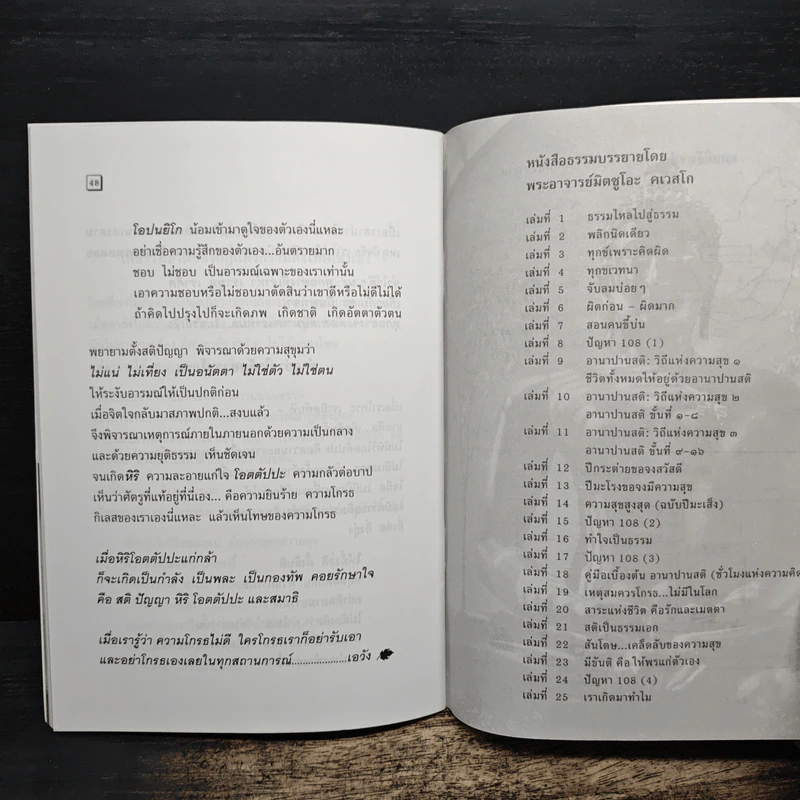 48
โอปนยิโก น้อมเข้ามาดูใจของตัวเองนี่แหละ
อย่าเชื่อความรู้สึกของตัวเอง...อันตรายมาก
ชอบ ไม่ชอบ เป็นอารมณ์เฉพาะของเราเท่านั้น
เอาความชอบหรือไม่ชอบมาตัดสินว่าเขาดีหรือไม่ดีไม่ได้
ถ้าคิดไปปรุงไปก็จะเกิดภพ เกิดชาติ เกิดอัตตาตัวตน
พยายามตั้งสติปัญญา พิจารณาด้วยความสุขุมว่า
ไม่แน่ ไม่เที่ยง เป็นอนัตตา ไม่ใช่ตัว ไม่ใช่ตน
ให้ระงับอารมณ์ให้เป็นปกติก่อน
เมื่อจิตใจกลับมาสภาพปกติ...สงบแล้ว
จึงพิจารณาเหตุการณ์ภายในภายนอกด้วยความเป็นกลาง
และด้วยความยุติธรรม เห็นชัดเจน
จนเกิดหิริ ความละอายแก่ใจ โอตตัปปะ ความกลัวต่อบาป
เห็นว่าศัตรูที่แท้อยู่ที่นี่เอง... คือความยินร้าย ความโกรธ
กิเลสของเราเองนี่แหละ แล้วเห็นโทษของความโกรธ
เมื่อหิริโอตตัปปะแก่กล้า
ก็จะเกิดเป็นกำลัง เป็นพละ เป็นกองทัพ คอยรักษาใจ
คือ สติ ปัญญา หิริ โอตตัปปะ และสมาธิ
เมื่อเรารู้ว่า ความโกรธไม่ดี ใครโกรธเราก็อย่ารับเอา
และอย่าโกรธเองเลยในทุกสถานการณ์...................เอวัง
หนังสือธรรมบรรยายโดย
พระอาจารย์มิตซูโอะ คเวสโก
เล่มที่ 1 ธรรมไหลไปสู่ธรรม
เล่มที่ 2 พลิกนิดเดียว
เล่มที่ 3 ทุกข์เพราะคิดผิด
เล่มที่ 4 ทุกขเวทนา
เล่มที่ 5 จับลมบ่อย ๆ
เล่มที่ 6 ผิดก่อน – ผิดมาก
เล่มที่ 7 สอนคนขี้บ่น
เล่มที่ 8 ปัญหา 108 (1)
เล่มที่ 9 อานาปานสติ: วิถีแห่งความสุข ๑
ชีวิตทั้งหมดให้อยู่ด้วยอานาปานสติ
เล่มที่ 10 อานาปานสติ: วิถีแห่งความสุข ๒
อานาปานสติ ขั้นที่ ๑-๘
เล่มที่ 11 อานาปานสติ: วิถีแห่งความสุข ๓
อานาปานสติ ขั้นที่ ๙-๑๖
เล่มที่ 12 ปีกระต่ายของจงสวัสดี
เล่มที่ 13 ปีมะโรงขอจงมีความสุข
เล่มที่ 14 ความสุขสูงสุด (ฉบับปีมะเส็ง)
เล่มที่ 15 ปัญหา 108 (2)
เล่มที่ 16 ทำใจเป็นธรรม
เล่มที่ 17 ปัญหา 108 (3)
เล่มที่ 18 คู่มือเบื้องต้น อานาปานสติ (ชั่วโมงแห่งความคิด
เล่มที่ 19 เหตุสมควรโกรธ...ไม่มีในโลก
เล่มที่ 20 สาระแห่งชีวิต คือรักและเมตตา
เล่มที่ 21 สติเป็นธรรมเอก
เล่มที่ 22 สันโดษ...เคล็ดลับของความสุข
เล่มที่ 23 มีขันติ คือ ให้พรแก่ตัวเอง
เล่มที่ 24 ปัญหา 108 (4)
เล่มที่ 25 เราเกิดมาทำไม